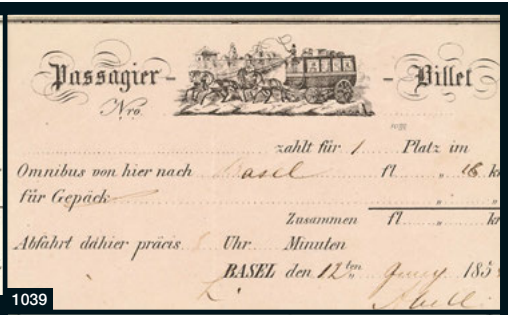 Passagier - - Billet
Nro.
zahlt für 1 Platz im
Omnibus von hier nach Basel fl „ 18 kr
für Gepäck „ „
Zusammen fl „ kr
Abfahrt dahier präcis Uhr Minuten
BASEL den 12ten 185
1039